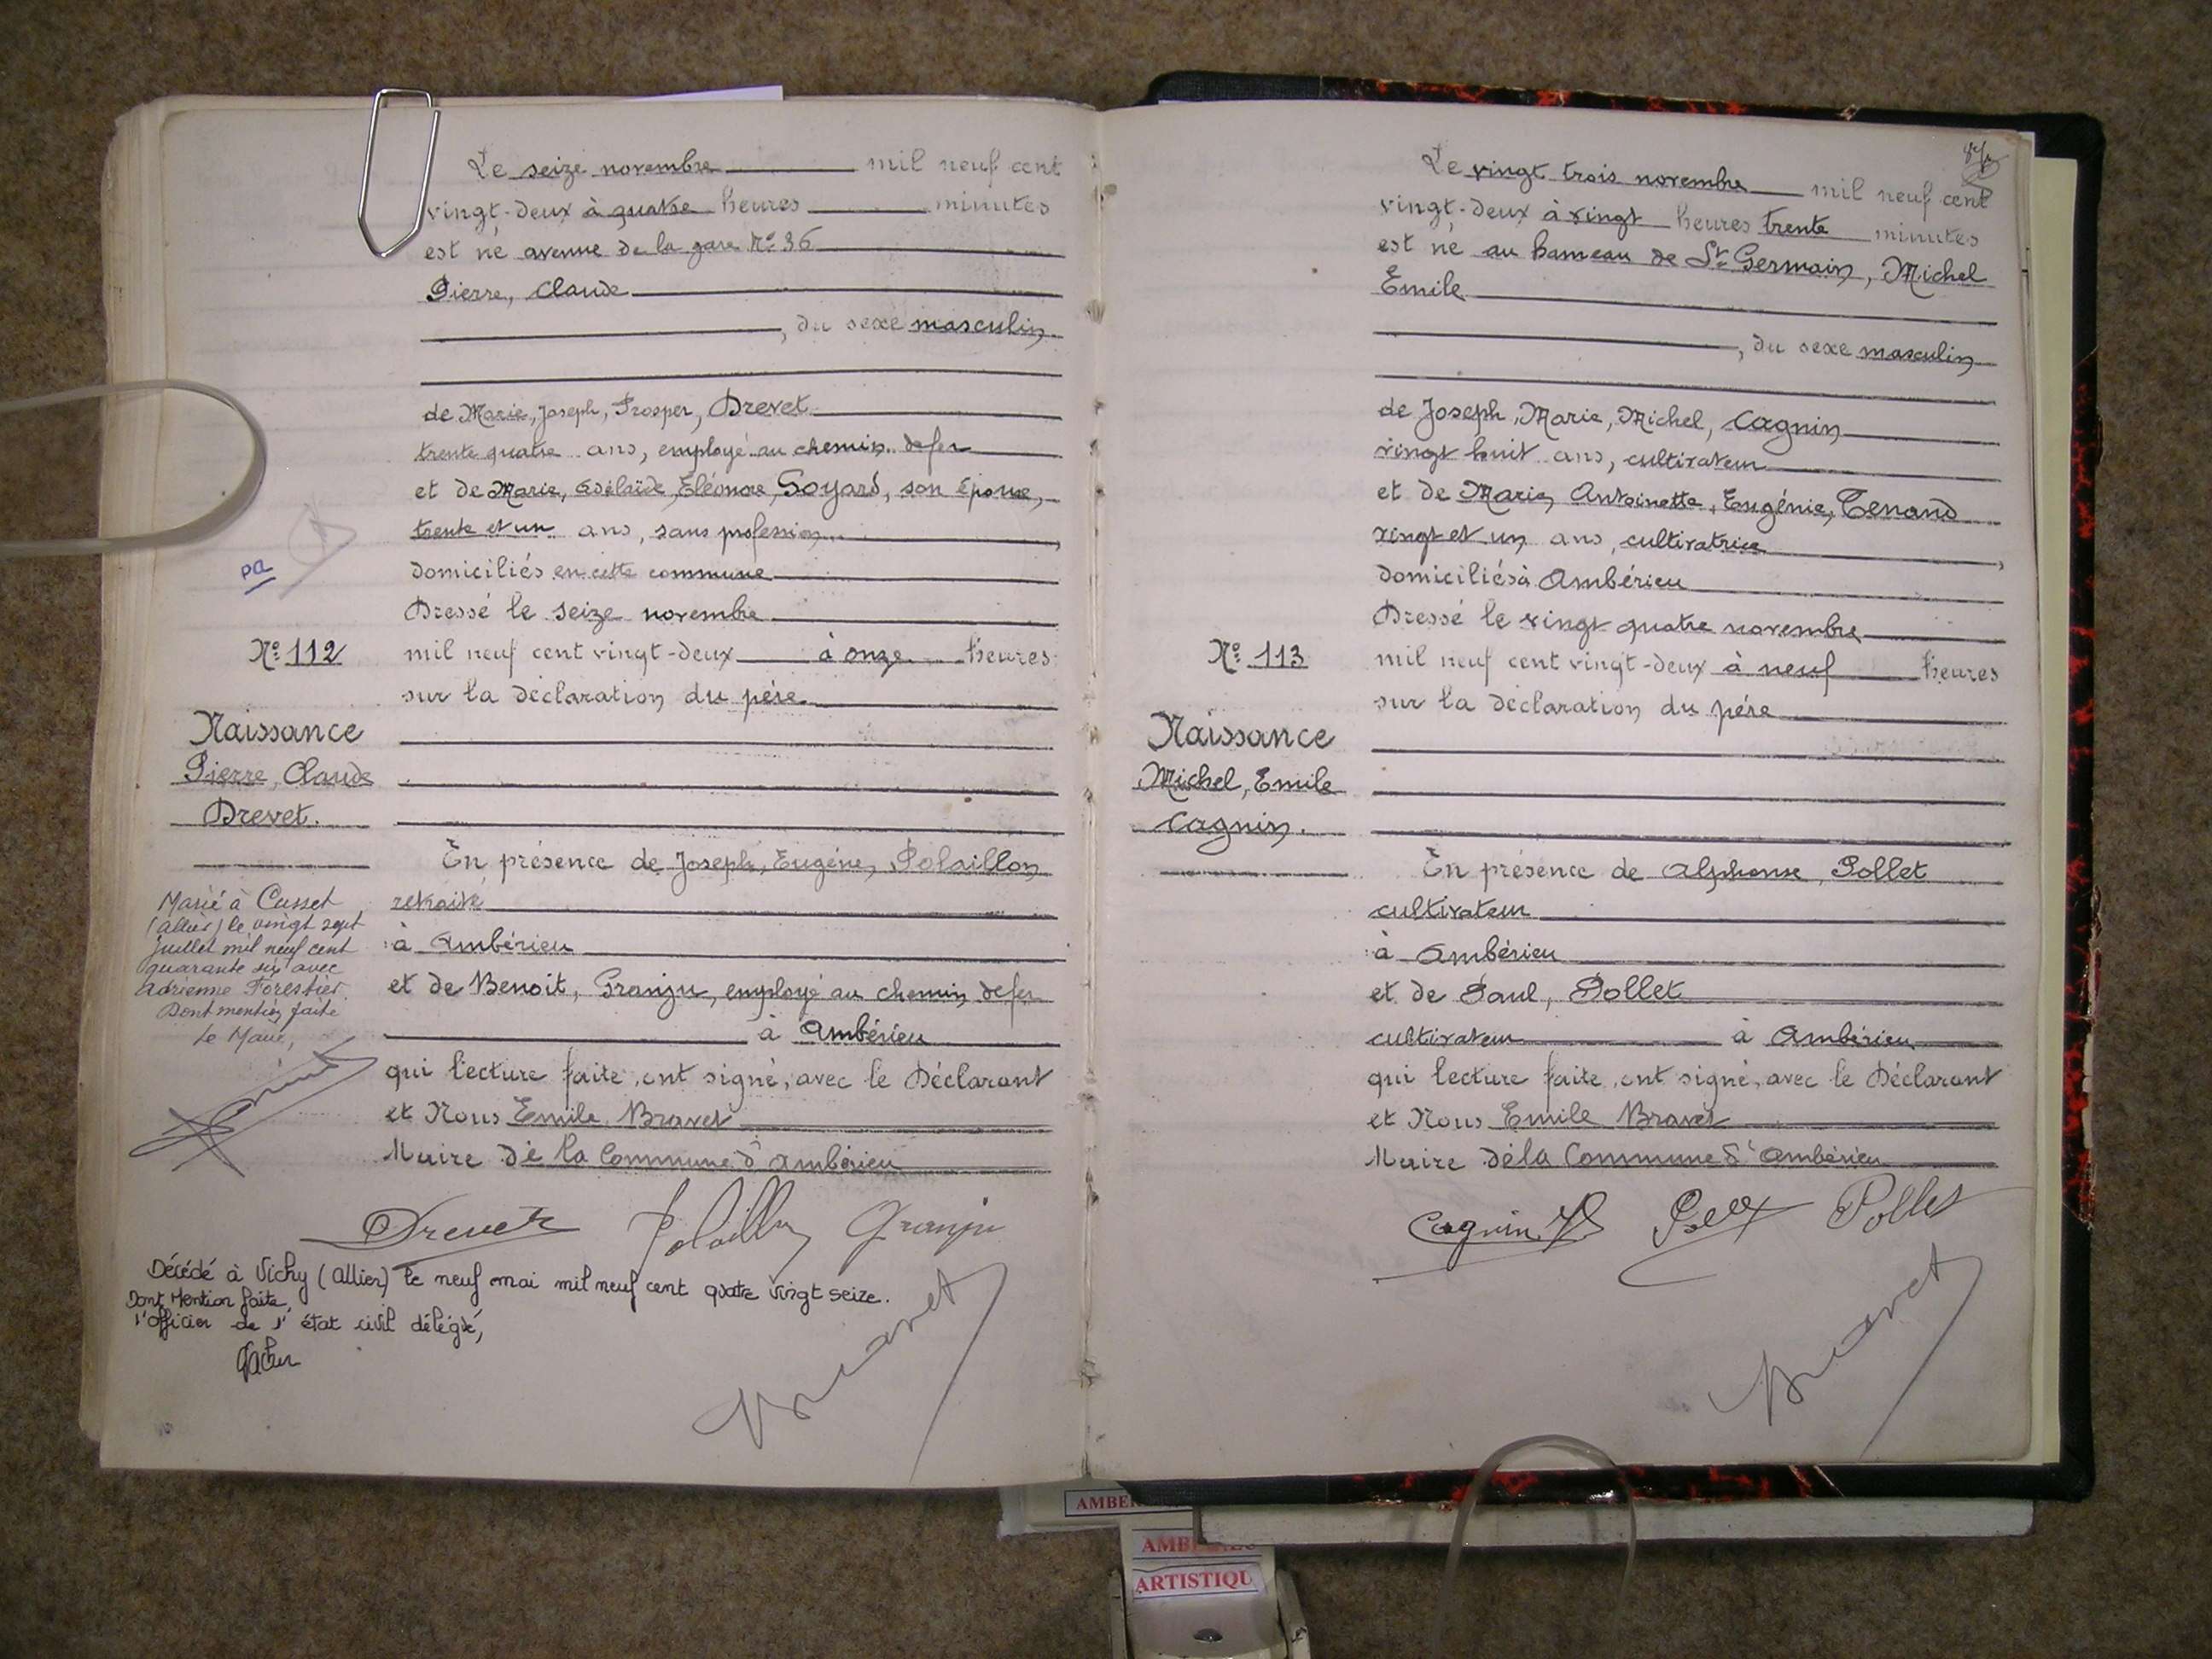 Le seize novembre mil neuf cent
vingt-deux à quatre heures minutes
est né avenue de la gare No 36
Pierre, Claude
, du sexe masculin
de Marie, Joseph, Prosper, Drevet
trente quatre ans, employé au chemin de fer
et de Marie, Adélaïde, Eléonore, Goyard, son épouse,
trente et un ans, sans profession
domiciliés en cette commune
Dressé le seize novembre
mil neuf cent vingt-deux à onze heures
sur la déclaration du père
En présence de Joseph, Eugène, Polaillon
retraité
à Ambérieu
et de Benoit, Granju, employé au chemin de fer
à Ambérieu
qui lecture faite, ont signé, avec le Déclarant
et Nous Emile Bravet
Maire de la Commune d'Ambérieu
pa
No 112
Naissance
Pierre, Claude
Drevet.
Marié à Cusset
(Allier) le vingt sept
juillet mil neuf cent
quarante six avec
Adrienne Forestier.
Dont mention faite
Le Maire,
Drevet Polaillon Granju
Décédé à Vichy (Allier) le neuf mai mil neuf cent quatre vingt seize.
Dont Mention faite,
l'officier de l'état civil délégué,
Bravet
Le vingt trois novembre mil neuf cent
vingt-deux à vingt heures trente minutes
est né au hameau de St Germain, Michel
Emile
, du sexe masculin
de Joseph, Marie, Michel, Cagnin
vingt huit ans, cultivateur
et de Marie, Antoinette, Eugénie, Tenand
vingt et un ans, cultivatrice
domiciliés à Ambérieu
Dressé le vingt quatre novembre
mil neuf cent vingt-deux à neuf heures
sur la déclaration du père
En présence de Alphonse, Pollet
cultivateur
à Ambérieu
et de Paul, Pollet
cultivateur à Ambérieu
qui lecture faite, ont signé, avec le Déclarant
et Nous Emile Bravet
Maire de la Commune d'Ambérieu
No 113
Naissance
Michel, Emile
Cagnin.
Cagnin Pollet
Bravet
ARTISTIQU